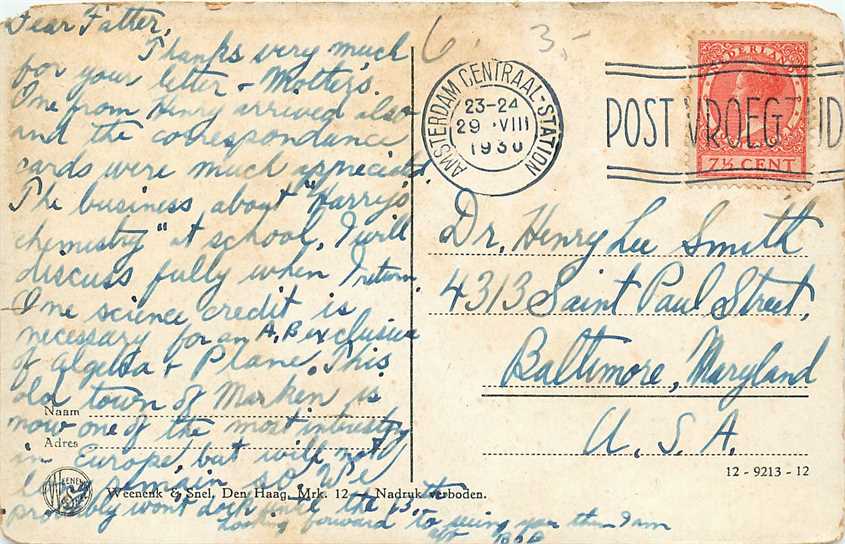 Dear Father,
Thanks very much
for your letter + Mother's.
One from Henry arrived also
and the correspondance
cards were much appreciated.
The business about "Harry's
chemistry" at school, I will
discuss fully when I return.
One science credit is
necessary for an A.B exclusive
of algebra + Plane. This
old town of Marken is
now one of the most interesting
in Europe, but will not
long remain so. We
probably wont dock until the 13th
Looking forward to seeing you then I am
Naam
Adres
Weenenk & Snel, Den Haag. Mrk. 12 - Nadruk verboden.
6. 3.-
AMSTERDAM CENTRAAL-STATION
23-24
29 ·VIII
1930
POST VROEGTIJD
NEDERLAND
7½ CENT
Dr. Henry Lee Smith
4313 Saint Paul Street,
Baltimore, Maryland
U. S. A.
12 - 9213 - 12